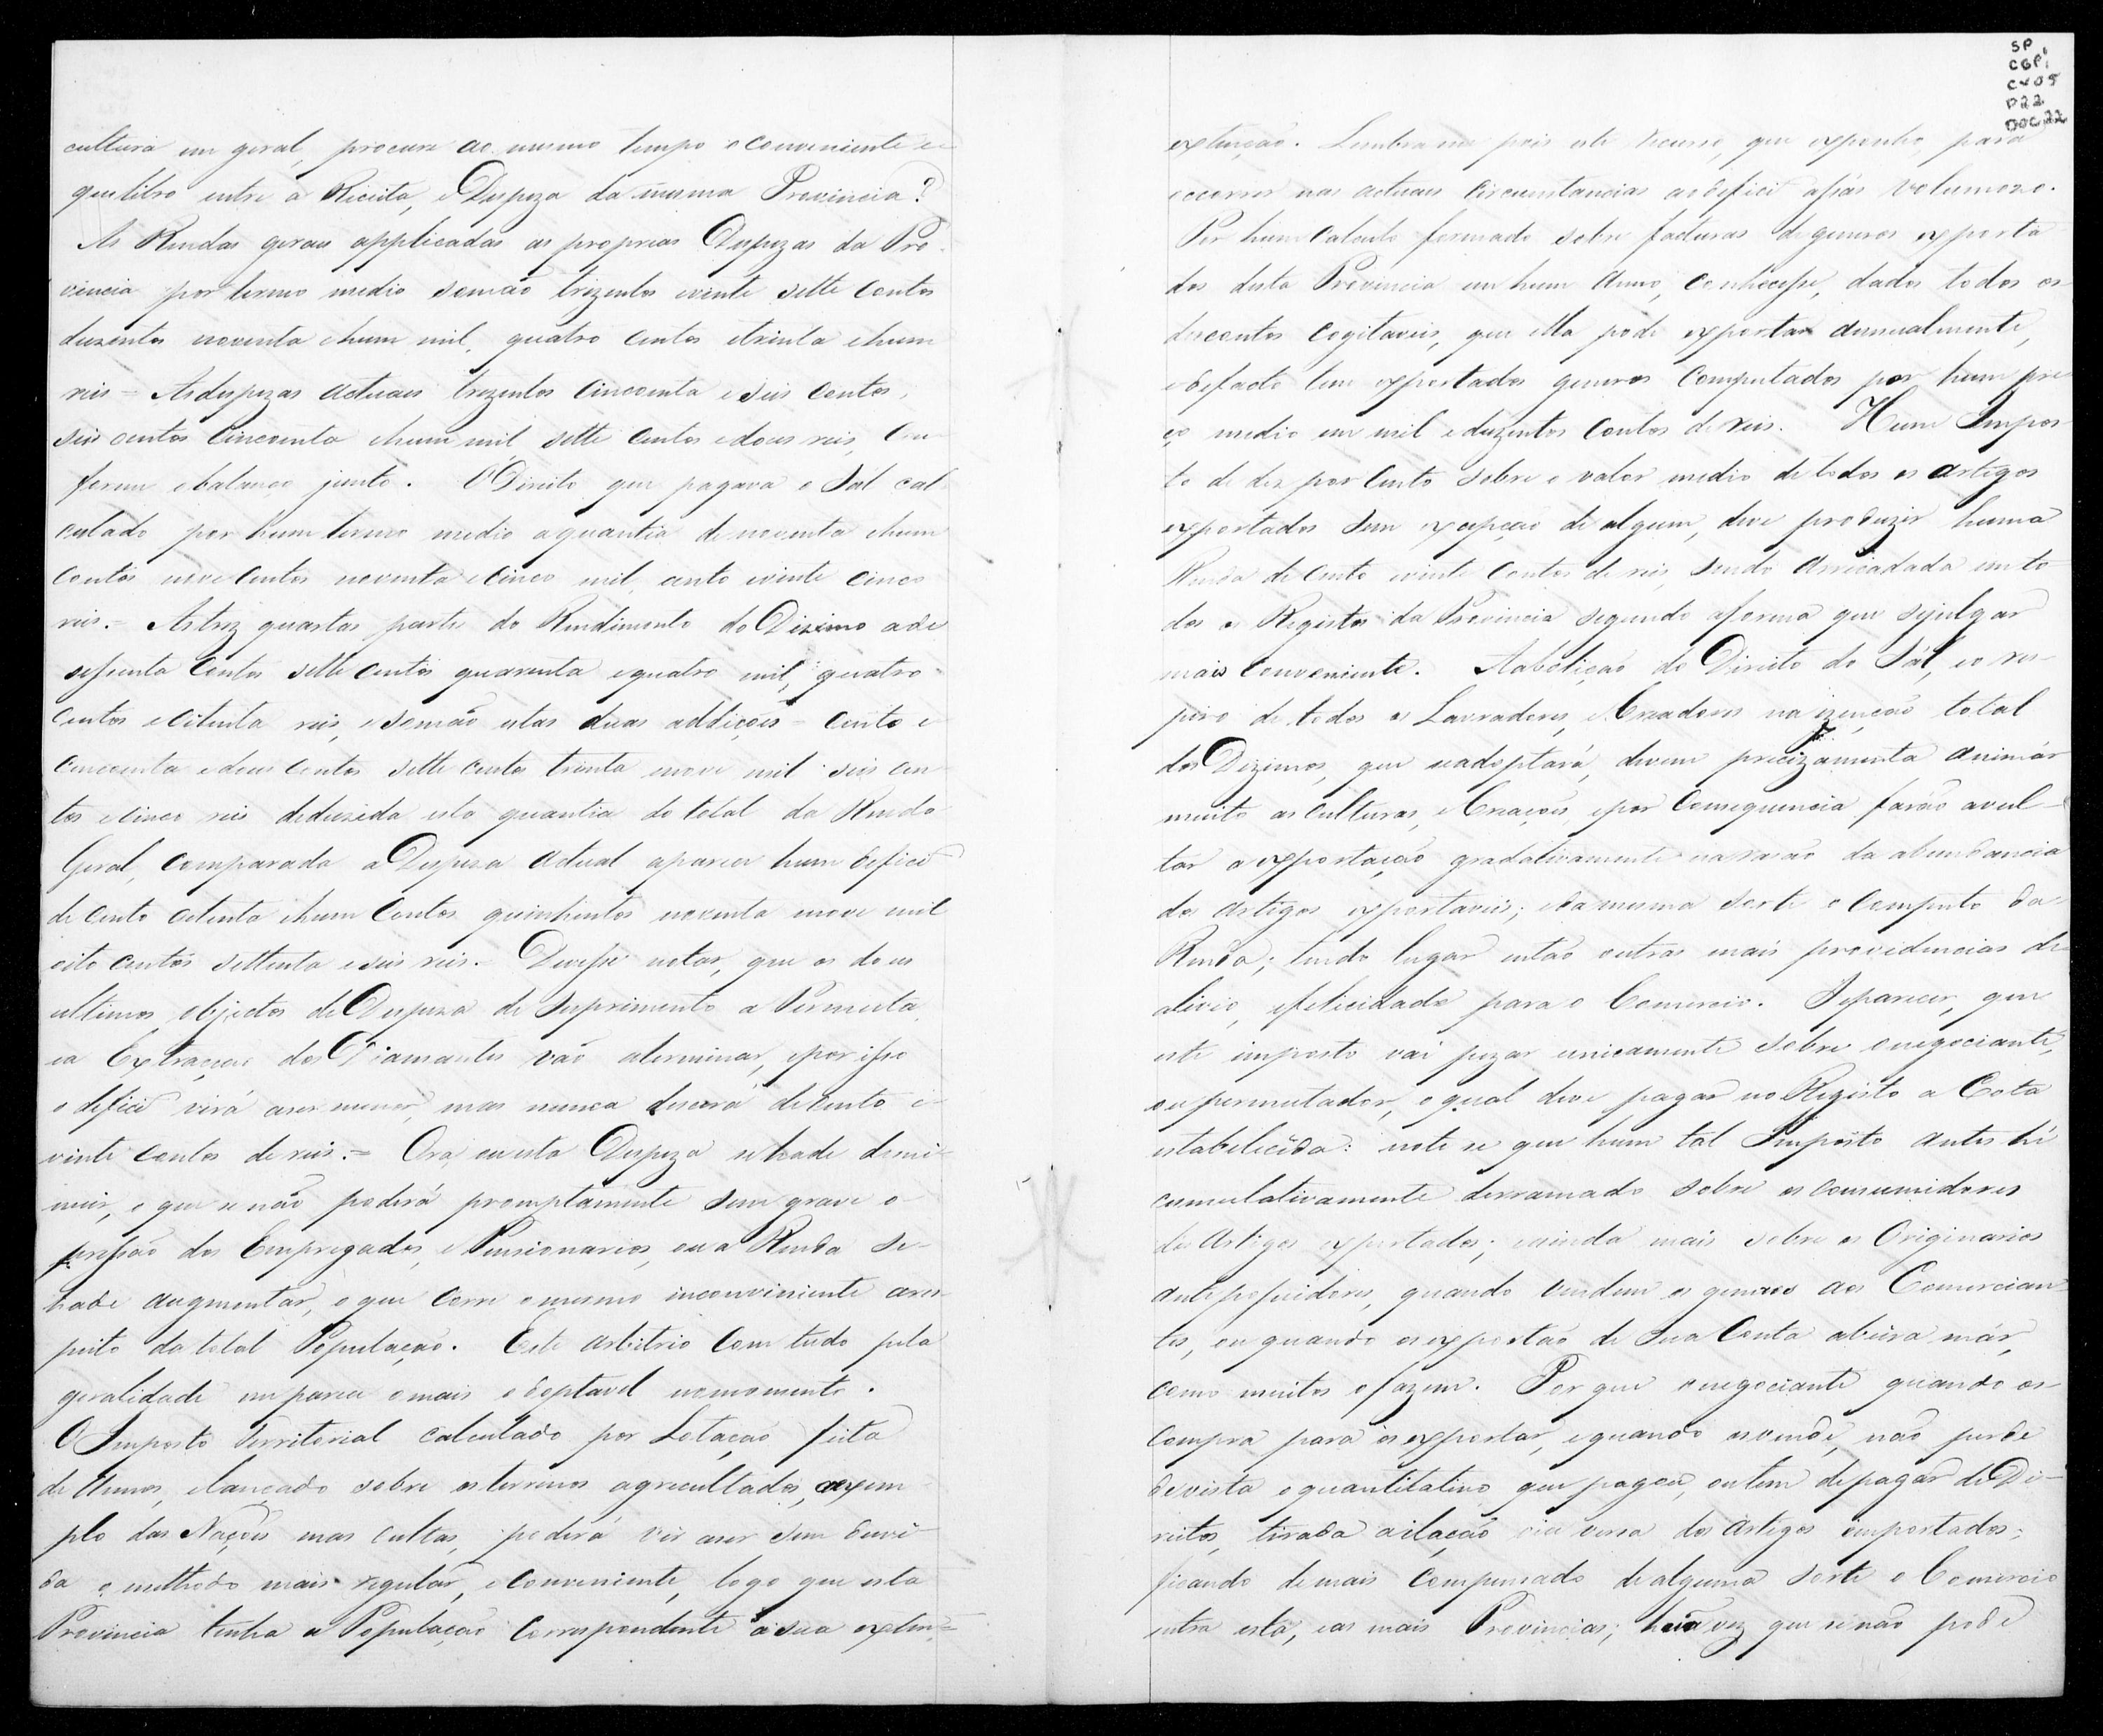 cultura em geral, procura ao mesmo tempo o conveniente e
quilibro entre a Riceita, e Despeza da mesma Provincia?
As Rendas geraes applicadas as proprias Despezas da Pro-
vincia por termo medio somão trezentos e vinte sette Contos
duzentos noventa e hum mil, quatro centos e trinta e hum
reis = As despezas actuaes trezentos Cincoenta e seis Contos,
seis centos Cincoenta e hum mil sette centos e dous reis, Con-
forme o balanco junto. O Direito que pagava o Sal cal-
culado por hum termo medio a quantia de noventa e hum
Contos nove Centos noventa e cinco mil, cento e vinte cinco
reis. - As trez quartas parte do Rendimento do Dizimo a de
sessenta Contos sette centos quarenta e quatro mil, quatro
Centos e oitenta reis, e somão estas duas addições - Cento e
Cincoenta e dous Contos sette centos trinta e nove mil seis cen
tos e cinco reis deduzida esta quantia do total da Renda
Geral, Comparada a Despeza Actual aparece hum deficid
de Cento oitenta e hum Contos quinhentos noventa e nove mil
oito centos settenta e seis reis. - Devesse notar, que os dous
ultimos objectos de Despeza de Suprimento a Permuta
ea Extracçaõ dos Diamantes vão a terminar, e por isso
o deficid virá a ser menor, mas nunca descerá de cento e
vinte contos de reis. = Ora, ou esta Despeza se hade demi-
nuir, o que se não poderá promptamente sem grave o-
pressão dos Empregados, e Pensionarios, ou a Renda se-
hade augmentar, o que Corre o mesmo inconviniente a res-
peito da total População. Este arbitrio Com tudo pela
geralidade em parece o mais adoptavel no momento.
O Imposto Territorial calculado por Lotação feita
de Annos, e lançado sobre os terrenos agricultados, a exem
plo das Nações mas cultas, poderá vir a ser sem duvi-
da o methodo mais regular, e Conveniente, logo que esta
Provincia tenha a População Correspondente á sua exten-
SP
CGP1
CX05
P22
DOC.22
extenção. Lembra me pois este recurso, que exponho, para
occorrer nas actuaes Circunstancias ao deficid assás volumozo.
Por hum Calculo formado sobre facturas de generos exporta
dos desta Provincia em hum Anno, Conhecesse, dados todos os
descontos Cogitaveis, que ella pode exportar annualmente,
e defacto tem exportados generos Computados por hum pre
ço medio em mil e duzentos Contos de reis. Hum Impos-
to de dez por Cento sobre o valor medio de todos os artigos
exportados sem excepção de algum, deve produzir huma
Renda de Cento e vinte Contos de reis, sendo Arrecadada em to
dos os Registos da Provincia segundo a forma que se julgar
mais Conveniente. A abolição do Direito do Sal, e o res-
piro de todos os Lavradores, e Creadores na izenção total
dos Dizimos, que se adoptará, devem precizamente animár
muito as Culturas, e Creações, e por Consequencia farão avul-
tar a exportação gradativamente na razão da abundancia
dos Artigos exportaveis; e da mesma sorte o Computo da
Renda; tendo lugar então outras mais providencias de
alivio, e felicidade para o Comercio. Se parecer, que
este imposto vai pezar unicamente sobre o negociante,
ou permutador, o qual deve pagar no Registo a Cota
estabelecida: note se que hum tal Imposto antes hé
cumulativamente derramado sobre os consumidores
dos Artigos exportados; e ainda mais sobre os Originarios
ante possuidores, quando vendem os generos aos Comercian
tes, ou quando os exportão de sua Conta a beira már,
como muitos o fazem. Por que o negociante quando os
Compra para os exportar, e quando os vende, não perde
de vista o quantitativo que pagou, ou tem de pagar de Di-
reitos, tirada a ilação vice versa dos Artigos importados;
ficando de mais Compensado de alguma sorte o Comercio
entra esta, e as mais Provincias; húa vez que se não pode